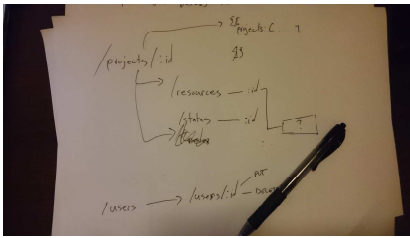 projects: [ ... ]
/projects/:id
/resources — :id
/states — :id
?
PUT
/users → /users/:id — DELETE